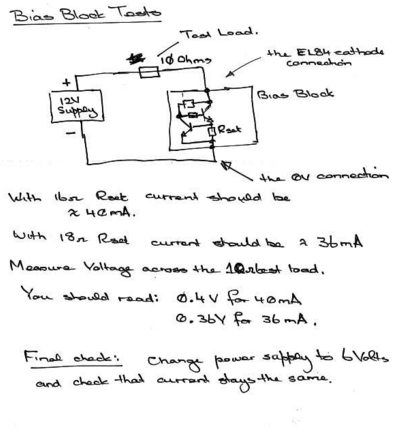 Bias Block Tests
Test Load.
10 Ohms
the EL84 cathode
connection
+
12V
Supply
-
Bias Block
Rset
the 0V connection
With 16Ω Rset current should be
≈ 40mA.
With 18Ω Rset current should be ≈ 36mA
Measure Voltage across the 10Ω test load.
You should read: 0.4V for 40mA
0.36V for 36mA.
Final check: Change power supply to 6Volts
and check that current stays the same.